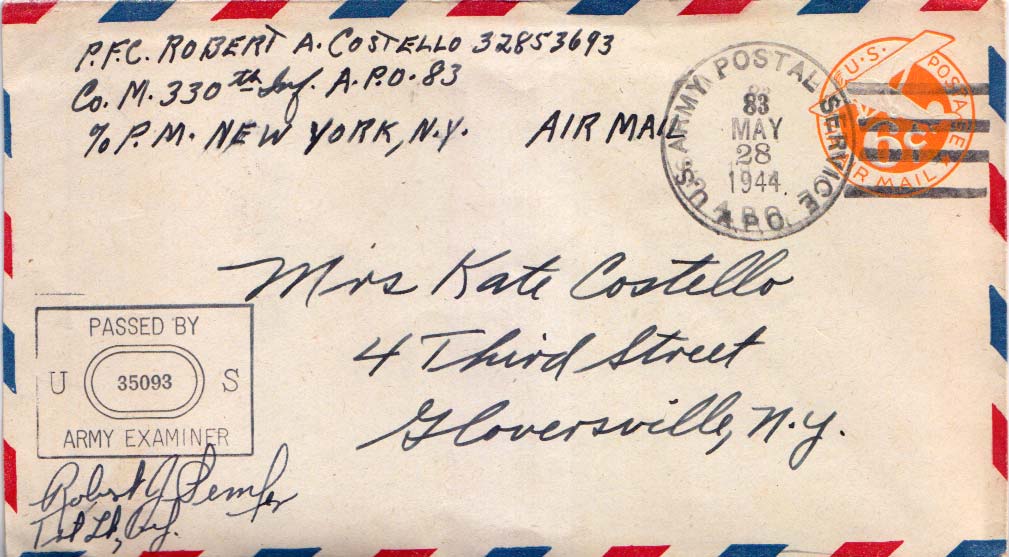 P.F.C. ROBERT A. COSTELLO 32853693
Co. M. 330th Inf. A.P.O. 83
% P.M. NEW YORK, N.Y. AIR MAIL
U.S. ARMY POSTAL SERVICE
83
MAY
28
1944
A.P.O.
U.S. POSTAGE
6¢
AIR MAIL
Mrs Kate Costello
4 Third Street
Gloversville, N.Y.
PASSED BY
U 35093 S
ARMY EXAMINER
Robert J
1st Lt, Inf.